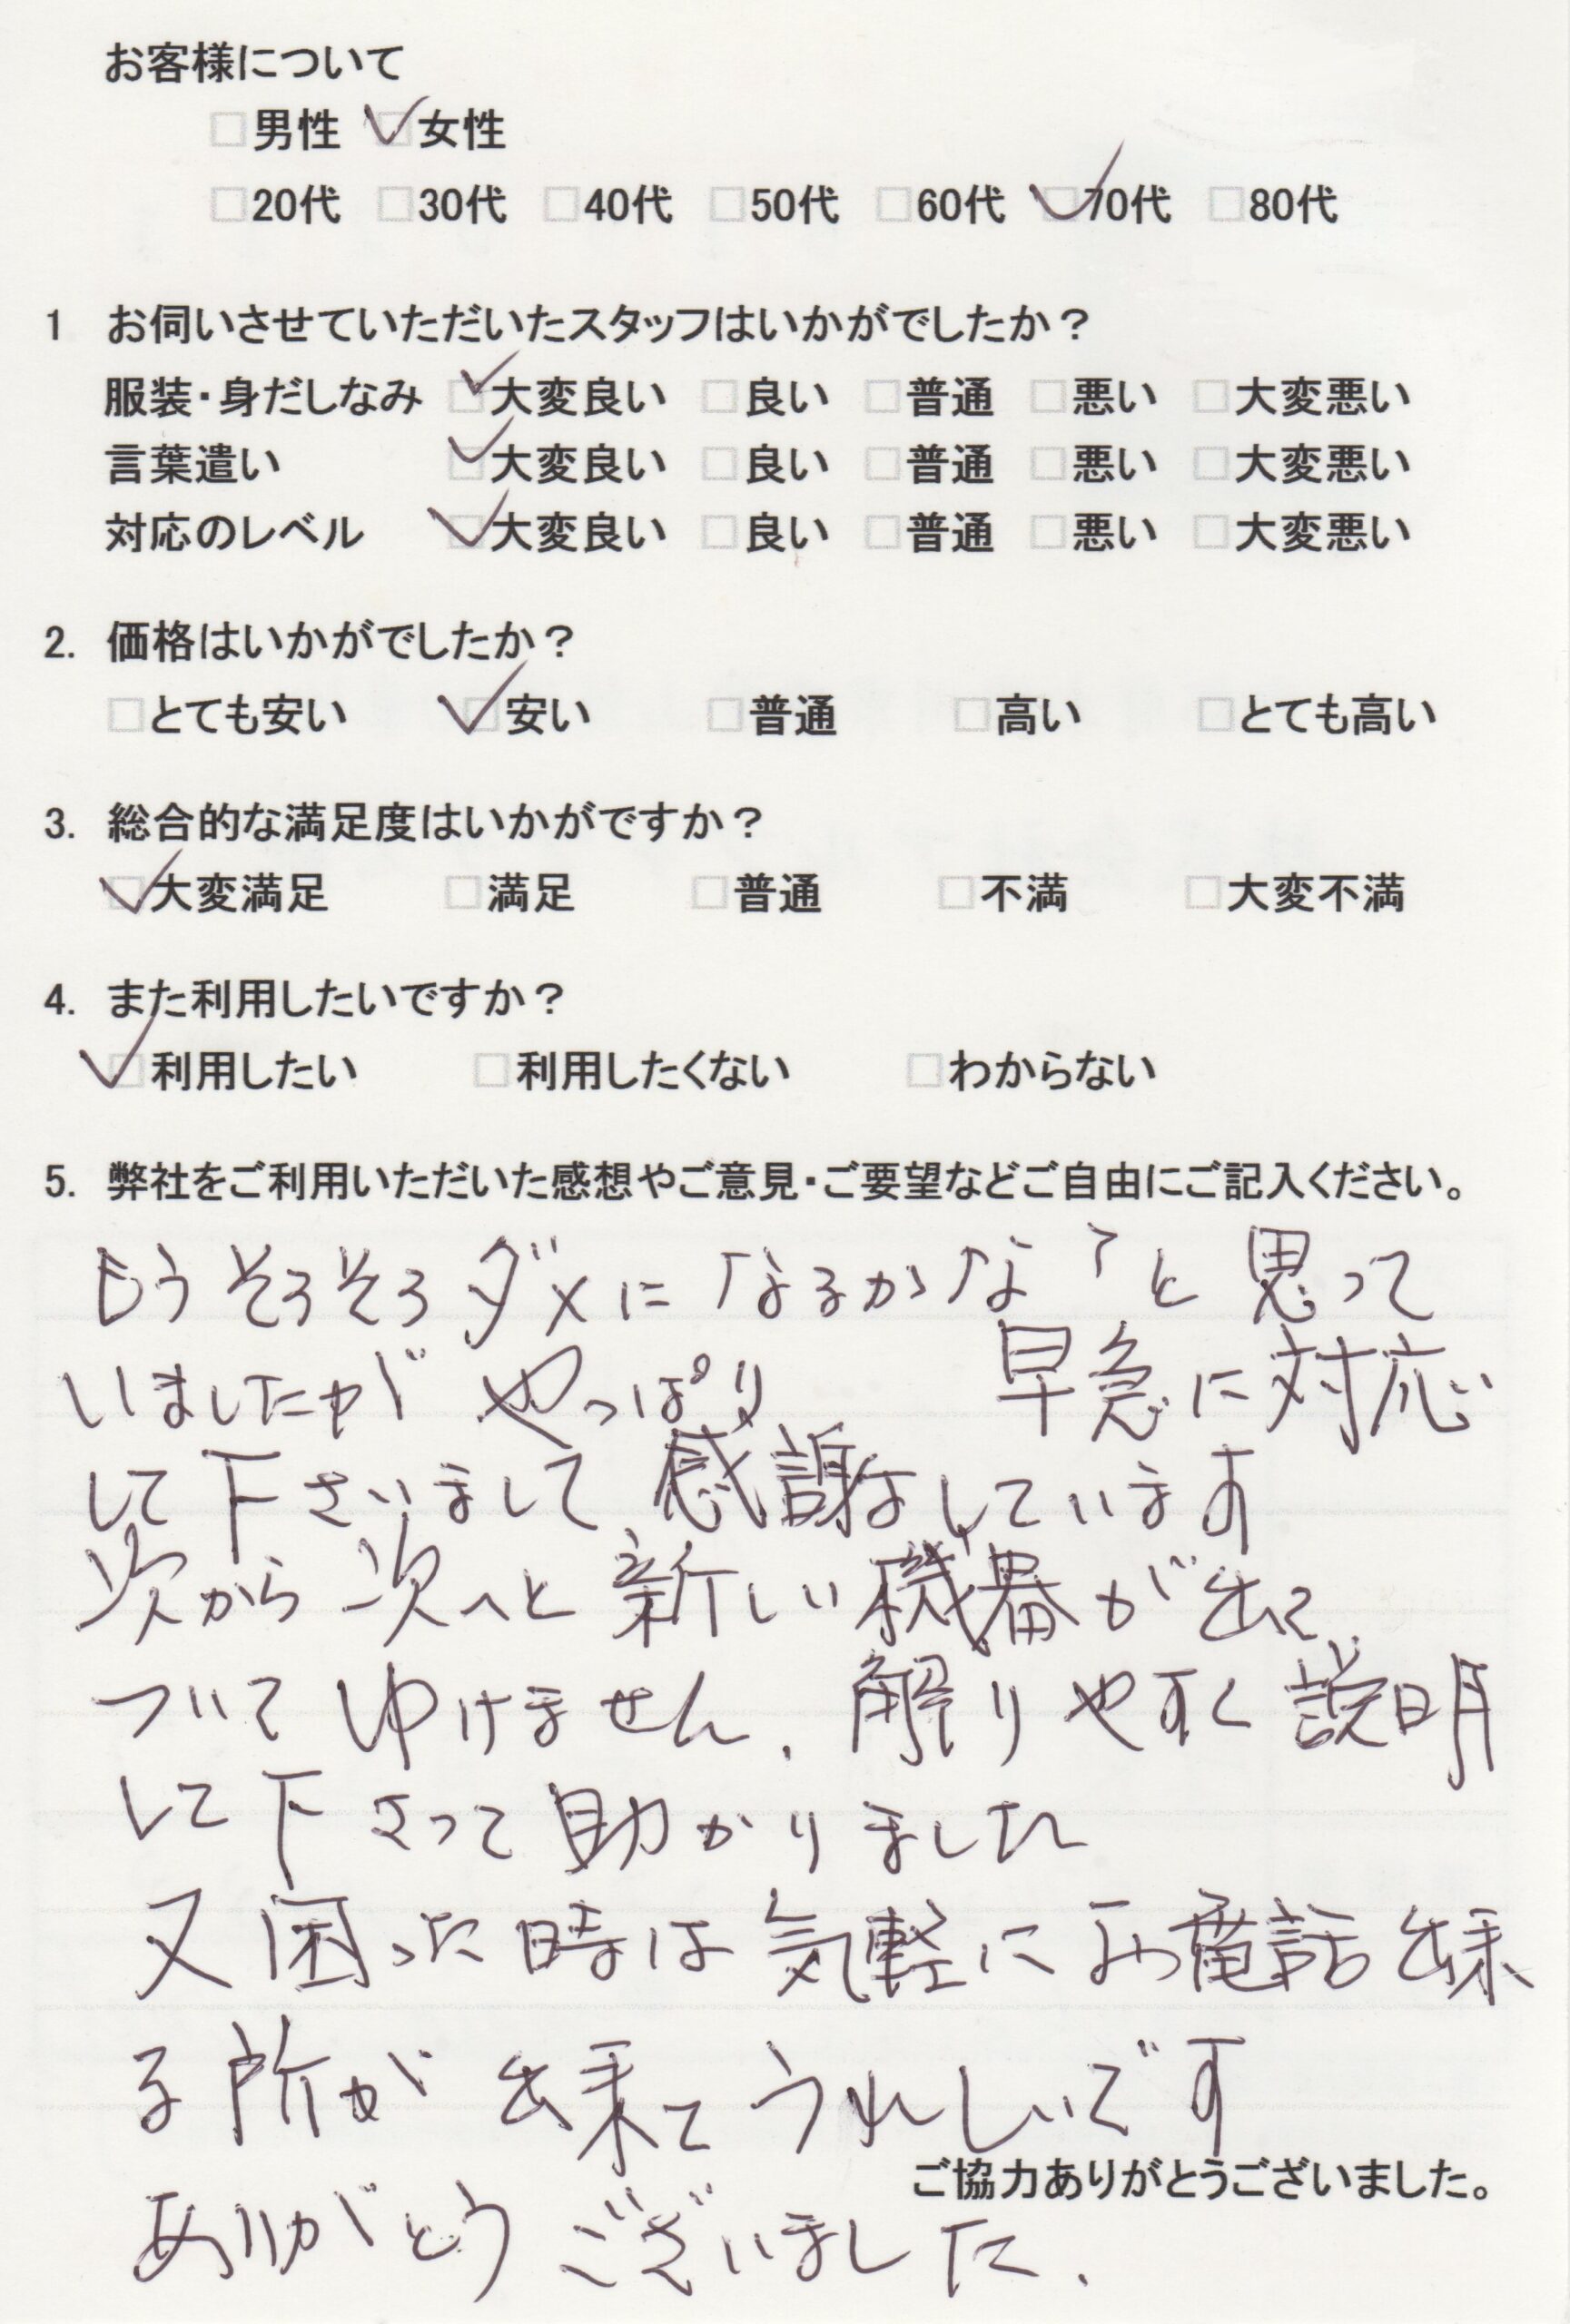 お客様について
□男性 ☑女性
□20代 □30代 □40代 □50代 □60代 ☑70代 □80代
1 お伺いさせていただいたスタッフはいかがでしたか？
服装・身だしなみ ☑大変良い □良い □普通 □悪い □大変悪い
言葉遣い ☑大変良い □良い □普通 □悪い □大変悪い
対応のレベル ☑大変良い □良い □普通 □悪い □大変悪い
2. 価格はいかがでしたか？
□とても安い ☑安い □普通 □高い □とても高い
3. 総合的な満足度はいかがですか？
☑大変満足 □満足 □普通 □不満 □大変不満
4. また利用したいですか？
☑利用したい □利用したくない □わからない
5. 弊社をご利用いただいた感想やご意見・ご要望などご自由にご記入ください。
もうそろそろダメになるかな？と思って
いましたが やっぱり 早急に対応
して下さいまして、感謝をしています
次から次へと新しい機器が出て
ついてゆけません。解りやすく説明
して下さって助かりました
又困った時は気軽にお電話出来
る所が出来てうれしいです
ご協力ありがとうございました。
ありがとうございました。